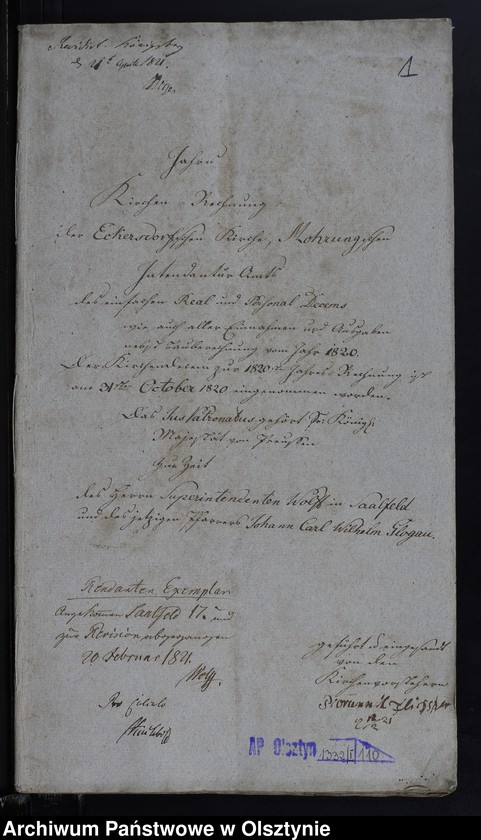 Revidirt Königsberg
d 21t April 1821.
1
Jahres
Kirchen-Rechnung
der Eckersdorfschen Kirche, Mohrungschen
Intendantur Amts
des einfachen Real und Personal Decems
wie auch aller Einnahmen und Ausgaben
nebst Bauberechnung vom Jahr 1820.
Der Kirchendecem zur 1820 Jahres-Rechnung ist
am 24ten October 1820 eingenommen worden.
Das Jus Patronatus gehört Sr Königl.
Majestät von Preussen
Zur Zeit
des Herrn Superintendenten Wolff in Saalfeld
und des jetzigen Pfarrers Johann Carl Wilhelm Glogau.
Rendanten Exemplar
Angekommen Saalfeld 17 und
zur Revision abgegangen
20 Februar 1821.
Wolff.
Pro Calculo
geführt u eingesandt
von den
Kirchenvorstehern
AP Olsztyn 1332/I 110
Archiwum Państwowe w Olsztynie